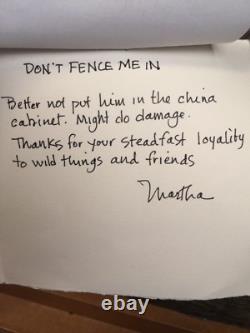 DON'T FENCE ME IN
Better not put him in the china
cabinet. Might do damage.
Thanks for your steadfast loyality
to wild things and friends
Martha
ebay